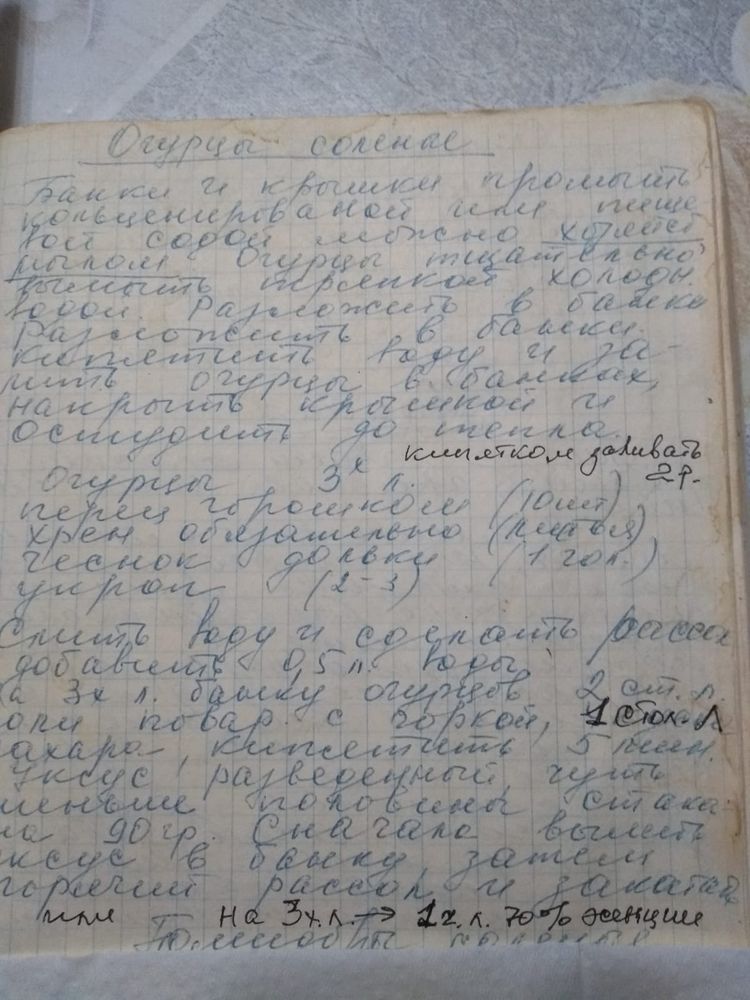 Огурцы соленые
Банки и крышки промыть
кольценированой или пище
вой содой можно хозяйст
мылом. Огурцы тщательно
вымыть тряпкой холодн.
водой. Разложить в банки
Разложить в банки.
кипятить воду и за-
лить огурцы в банках,
накрыть крышкой и
остудить до тепла.
кипятком заливать
2 р.
Огурцы 3х л.
перец горошком (10шт)
хрен обязательно (листья)
чеснок дольки (1 гол.)
укроп (2-3)
Слить воду и сделать рассол
добавить 0,5 л. воды
а 3х л. банку огурцов 2 ст. л.
оли повар. с горкой, 1 стол. л
ахара, кипятить 5 мин.
Уксус разведенный чуть
меньше половины стака-
на 90 гр. Сначала вылить
ксус в банку затем
горячий рассол и закатать
или на 3х.л. → 1 ч. л. 70%